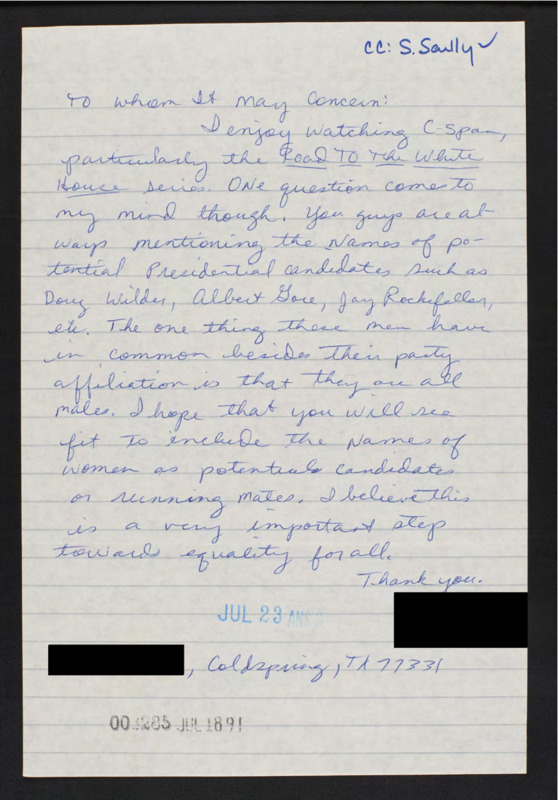 cc: S. Sculy ✓
To Whom It May Concern:
I enjoy watching C-Span,
particularly the Road To The White
House series. One question comes to
my mind though. You guys are al-
ways mentioning the names of po-
tential Presidential candidates such as
Doug Wilder, Albert Gore, Jay Rockefeller,
etc. The one thing these men have
in common besides their party
affiliation is that they are all
males. I hope that you will see
fit to include the names of
women as potentials candidates
or running mates. I believe this
is a very important step
towards equality for all.
Thank you.
JUL 23 ANS'D
, Coldspring, TX 77331
003285 JUL 18 91